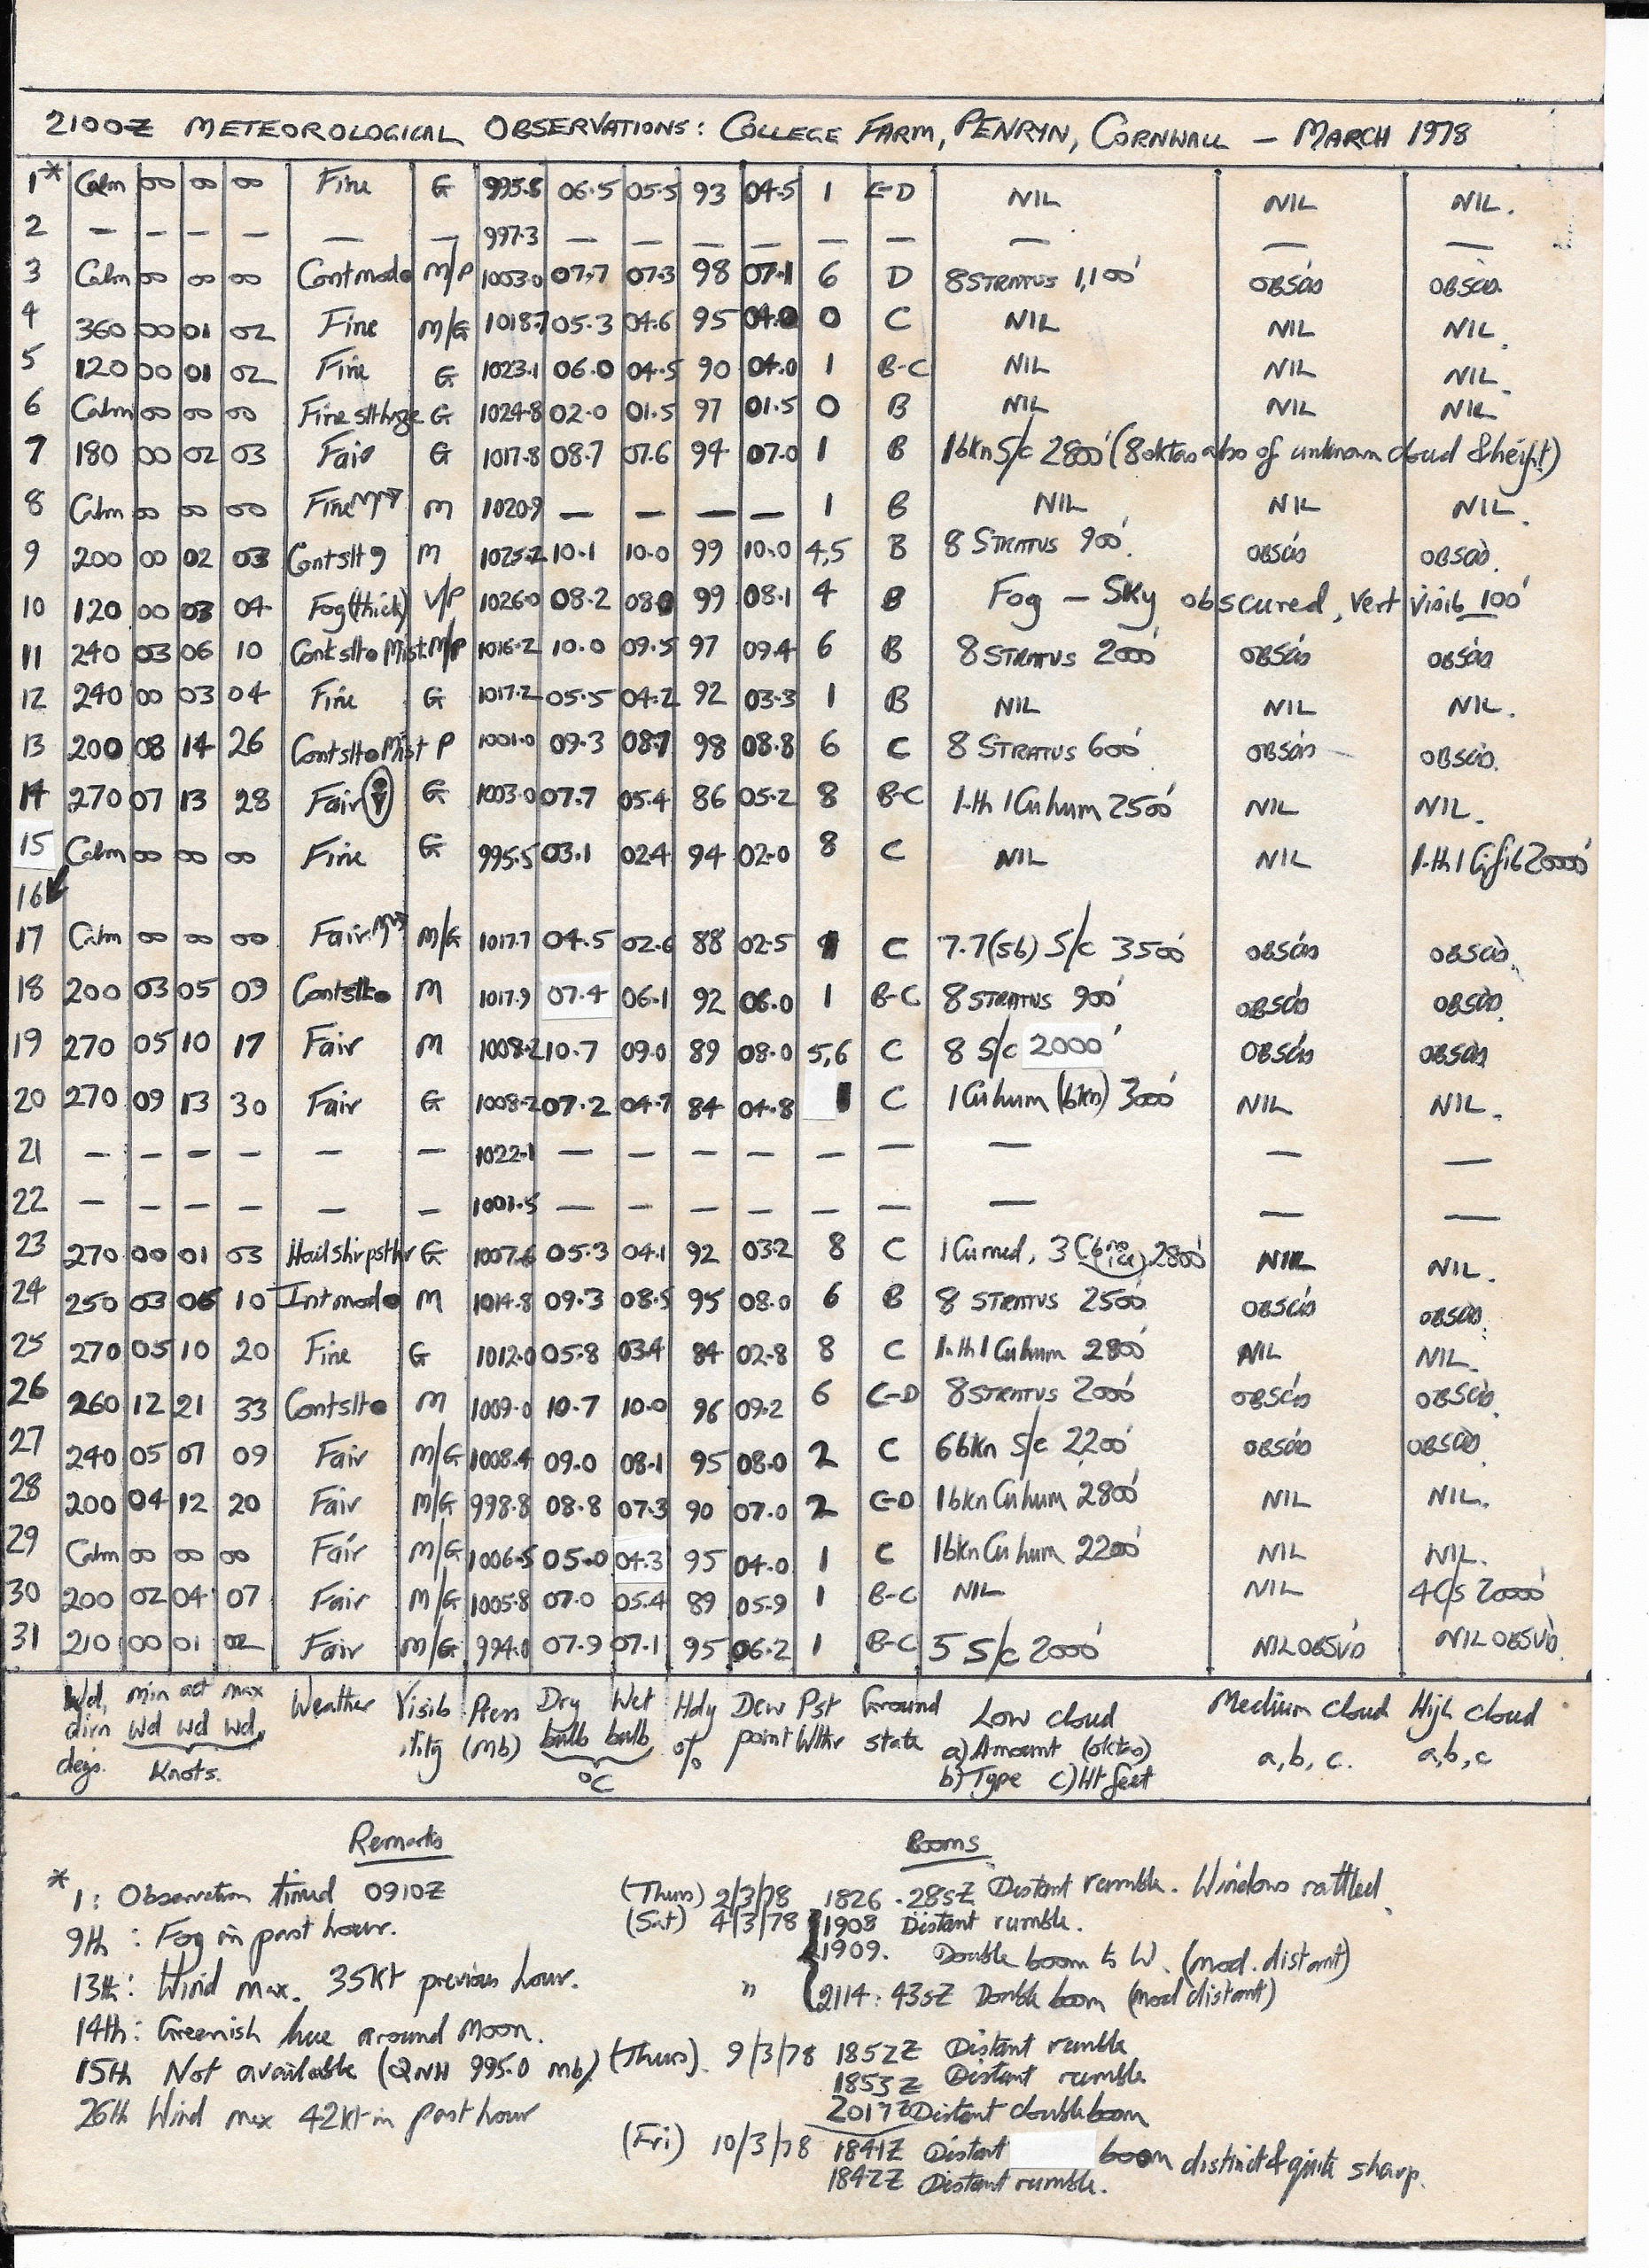 2100Z METEOROLOGICAL OBSERVATIONS: COLLEGE FARM, PENRYN, CORNWALL — MARCH 1978
1* Calm 00 00 00 Fine G 995.5 06.5 05.5 93 04.5 1 C-D NIL NIL NIL.
2 — — — — — — 997.3 — — — — — — — — —
3 Calm 00 00 00 Cont mod● M/P 1003.0 07.7 07.3 98 07.1 6 D 8 STRATUS 1,100' OBSCD OBSCD.
4 360 00 01 02 Fine M/G 1018.7 05.3 04.6 95 04.0 0 C NIL NIL NIL.
5 120 00 01 02 Fine G 1023.1 06.0 04.5 90 04.0 1 B-C NIL NIL NIL.
6 Calm 00 00 00 Fine slt hze G 1024.8 02.0 01.5 97 01.5 0 B NIL NIL NIL.
7 180 00 02 03 Fair G 1017.8 08.7 07.6 94 07.0 1 B 1 bkn S/c 2800' (8 oktas also of unknown cloud & height)
8 Calm 00 00 00 Fine M 1020.9 — — — — 1 B NIL NIL NIL.
9 200 00 02 03 Cont slt 9 M 1025.2 10.1 10.0 99 10.0 4,5 B 8 STRATUS 900'. OBSCD OBSCD.
10 120 00 03 04 Fog (thick) V/P 1026.0 08.2 08.0 99 08.1 4 B Fog — Sky obscured, vert visib 100'
11 240 03 06 10 Cont slt● Mist M/P 1016.2 10.0 09.5 97 09.4 6 B 8 STRATUS 2000' OBSCD OBSCD
12 240 00 03 04 Fine G 1017.2 05.5 04.2 92 03.3 1 B NIL NIL NIL.
13 200 08 14 26 Cont slt● Mist P 1001.0 09.3 08.7 98 08.8 6 C 8 STRATUS 600' OBSCD OBSCD.
14 270 07 13 28 Fair G 1003.0 07.7 05.4 86 05.2 8 B-C 1.th 1 Cu hum 2500' NIL NIL.
15 Calm 00 00 00 Fine G 995.5 03.1 02.4 94 02.0 8 C NIL NIL 1.th 1 Ci fib 20000'
16
17 Calm 00 00 00 Fair M/G 1017.7 04.5 02.6 88 02.5 1 C 7.7 (sb) S/c 3500' OBSCD OBSCD.
18 200 03 05 09 Cont slt● M 1017.9 07.4 06.1 92 06.0 1 B-C 8 STRATUS 900' OBSCD OBSCD.
19 270 05 10 17 Fair M 1008.2 10.7 09.0 89 08.0 5,6 C 8 S/c 2000' OBSCD OBSCD
20 270 09 13 30 Fair G 1008.2 07.2 04.7 84 04.8 1 C 1 Cu hum (bkn) 3000' NIL NIL.
21 — — — — — — 1022.1 — — — — — — — — —
22 — — — — — — 1001.5 — — — — — — — — —
23 270 00 01 03 Hail sh G 1007.6 05.3 04.1 92 03.2 8 C 1 Cu med, 3 Cb 2800' NIL NIL.
24 250 03 06 10 Int mod● M 1014.8 09.3 08.5 95 08.0 6 B 8 STRATUS 2500' OBSCD OBSCD.
25 270 05 10 20 Fine G 1012.0 05.8 03.4 84 02.8 8 C 1.th 1 Cu hum 2800' NIL NIL.
26 260 12 21 33 Cont slt● M 1009.0 10.7 10.0 96 09.2 6 C-D 8 STRATUS 2000' OBSCD OBSCD.
27 240 05 07 09 Fair M/G 1008.4 09.0 08.1 95 08.0 2 C 6 bkn S/c 2200' OBSCD OBSCD.
28 200 04 12 20 Fair M/G 998.8 08.8 07.3 90 07.0 2 C-D 1 bkn Cu hum 2800' NIL NIL.
29 Calm 00 00 00 Fair M/G 1006.5 05.0 04.3 95 04.0 1 C 1 bkn Cu hum 2200' NIL NIL.
30 200 02 04 07 Fair M/G 1005.8 07.0 05.4 89 05.9 1 B-C NIL NIL 4 C/s 20000'
31 210 00 01 02 Fair M/G 994.0 07.9 07.1 95 06.2 1 B-C 5 S/c 2000' NIL OBSVD NIL OBSVD.
Wd, min act max Weather Visib Press Dry Wet Hdy Dew Pst Ground Low cloud Medium cloud High cloud
dirn wd wd wd, ility (Mb) bulb bulb % point Wthr state a) Amount (oktas) a, b, c. a, b, c
degs. Knots. °C b) Type c) Ht feet
Remarks
* 1: Observation timed 0910Z
9th : Fog in past hour.
13th: Wind max. 35kt previous hour.
14th: Greenish hue around Moon.
15th Not available (QNH 995.0 mb)
26th Wind max 42kt in past hour
Booms
(Thurs) 2/3/78 1826 . 28sZ Distant rumble. Windows rattled.
(Sat) 4/3/78 1908 Distant rumble.
1909. Double boom to W. (mod. distant)
" 2114 : 43sZ Double boom (mod distant)
(Thurs). 9/3/78 1852Z Distant rumble
1853Z Distant rumble
2017Z Distant double boom
(Fri) 10/3/78 1841Z Distant boom distinct & quite sharp.
1842Z Distant rumble.